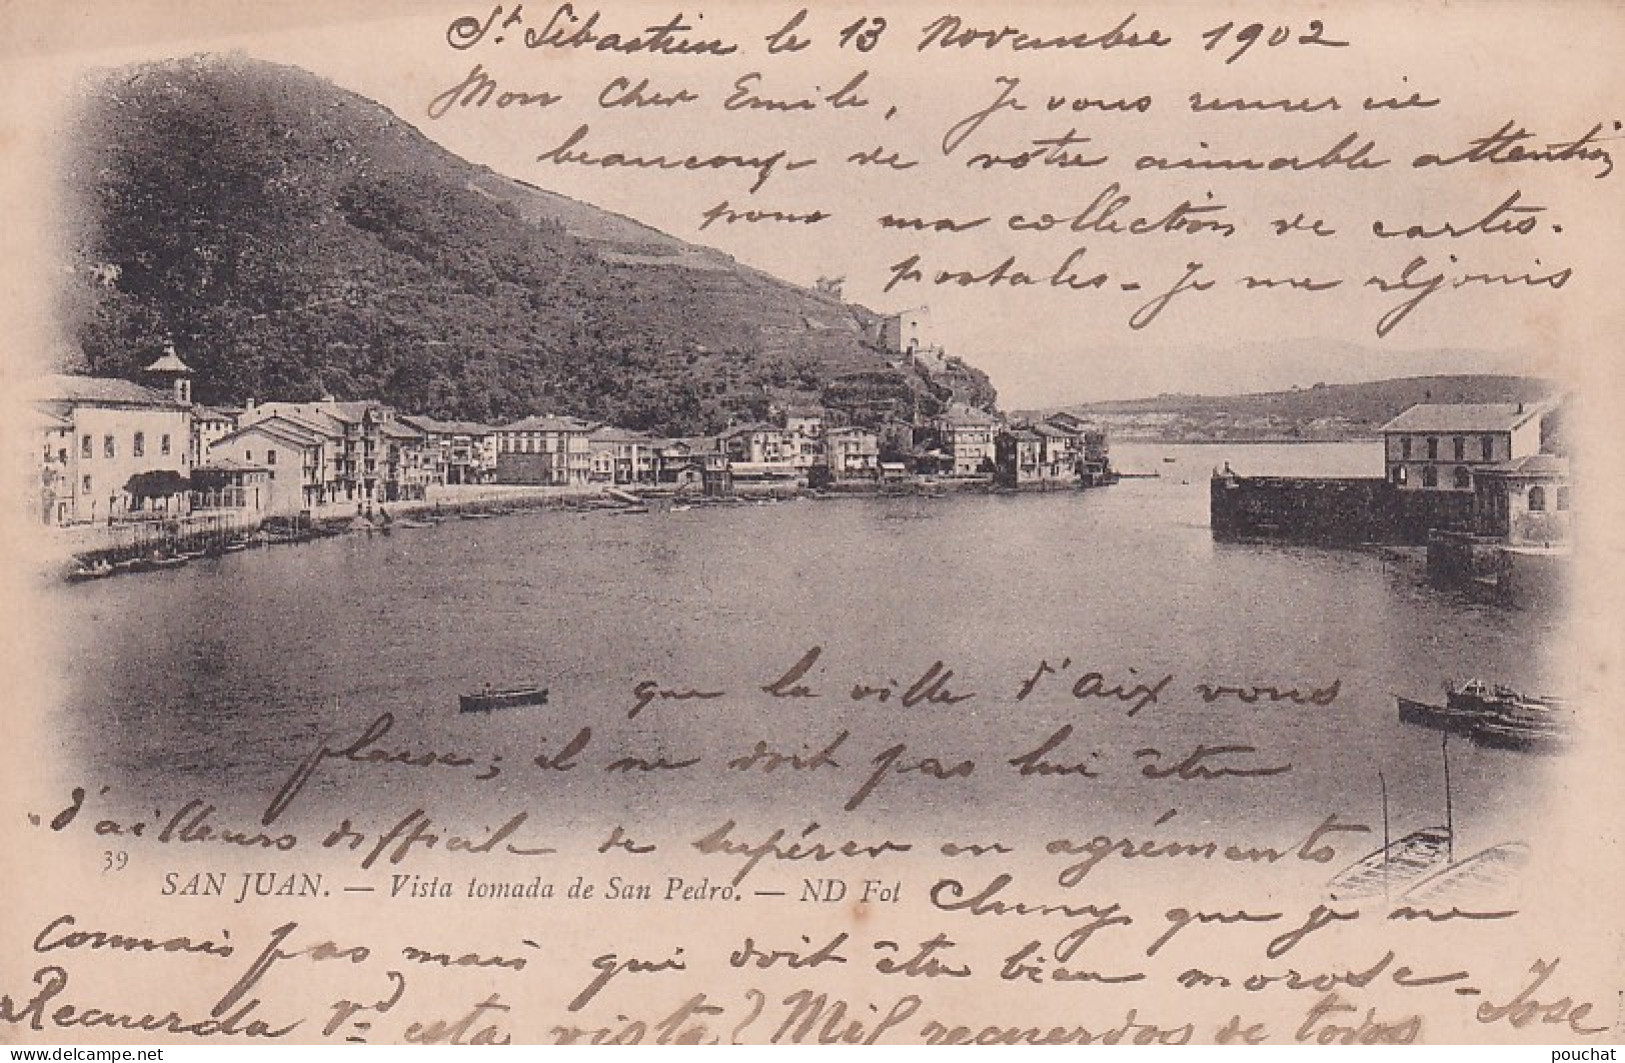 St Sébastien le 13 Novembre 1902
Mon Cher Emile, Je vous remercie
beaucoup de votre aimable attention
pour ma collection de cartes-
postales - Je me réjouis
que la ville d'Aix vous
plaise; il ne doit pas lui être
d'ailleurs difficile de supérer en agréments
39
SAN JUAN. — Vista tomada de San Pedro. — ND Fot
Cluny que je ne
connais pas mais qui doit être bien morose -
Recuerda Vd esta vista? Mil recuerdos de todos Jose
pouchat